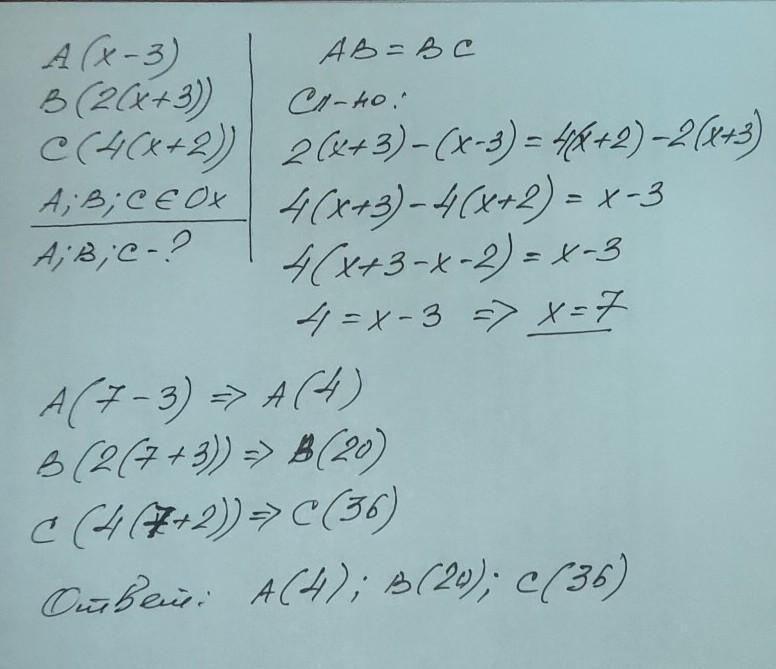 A(x-3)
B(2(x+3))
C(4(x+2))
A;B;C∈Ox
A;B;C-?
AB=BC
Сл-но:
2(x+3)-(x-3)=4(x+2)-2(x+3)
4(x+3)-4(x+2)=x-3
4(x+3-x-2)=x-3
4=x-3 => x=7
A(7-3)=>A(4)
B(2(7+3))=>B(20)
C(4(7+2))=>C(36)
Ответ: A(4); B(20); C(36)